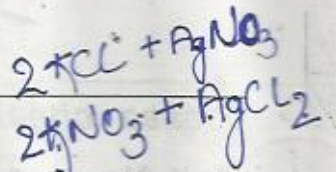 2KCl + AgNO3
2KNO3 + AgCl2